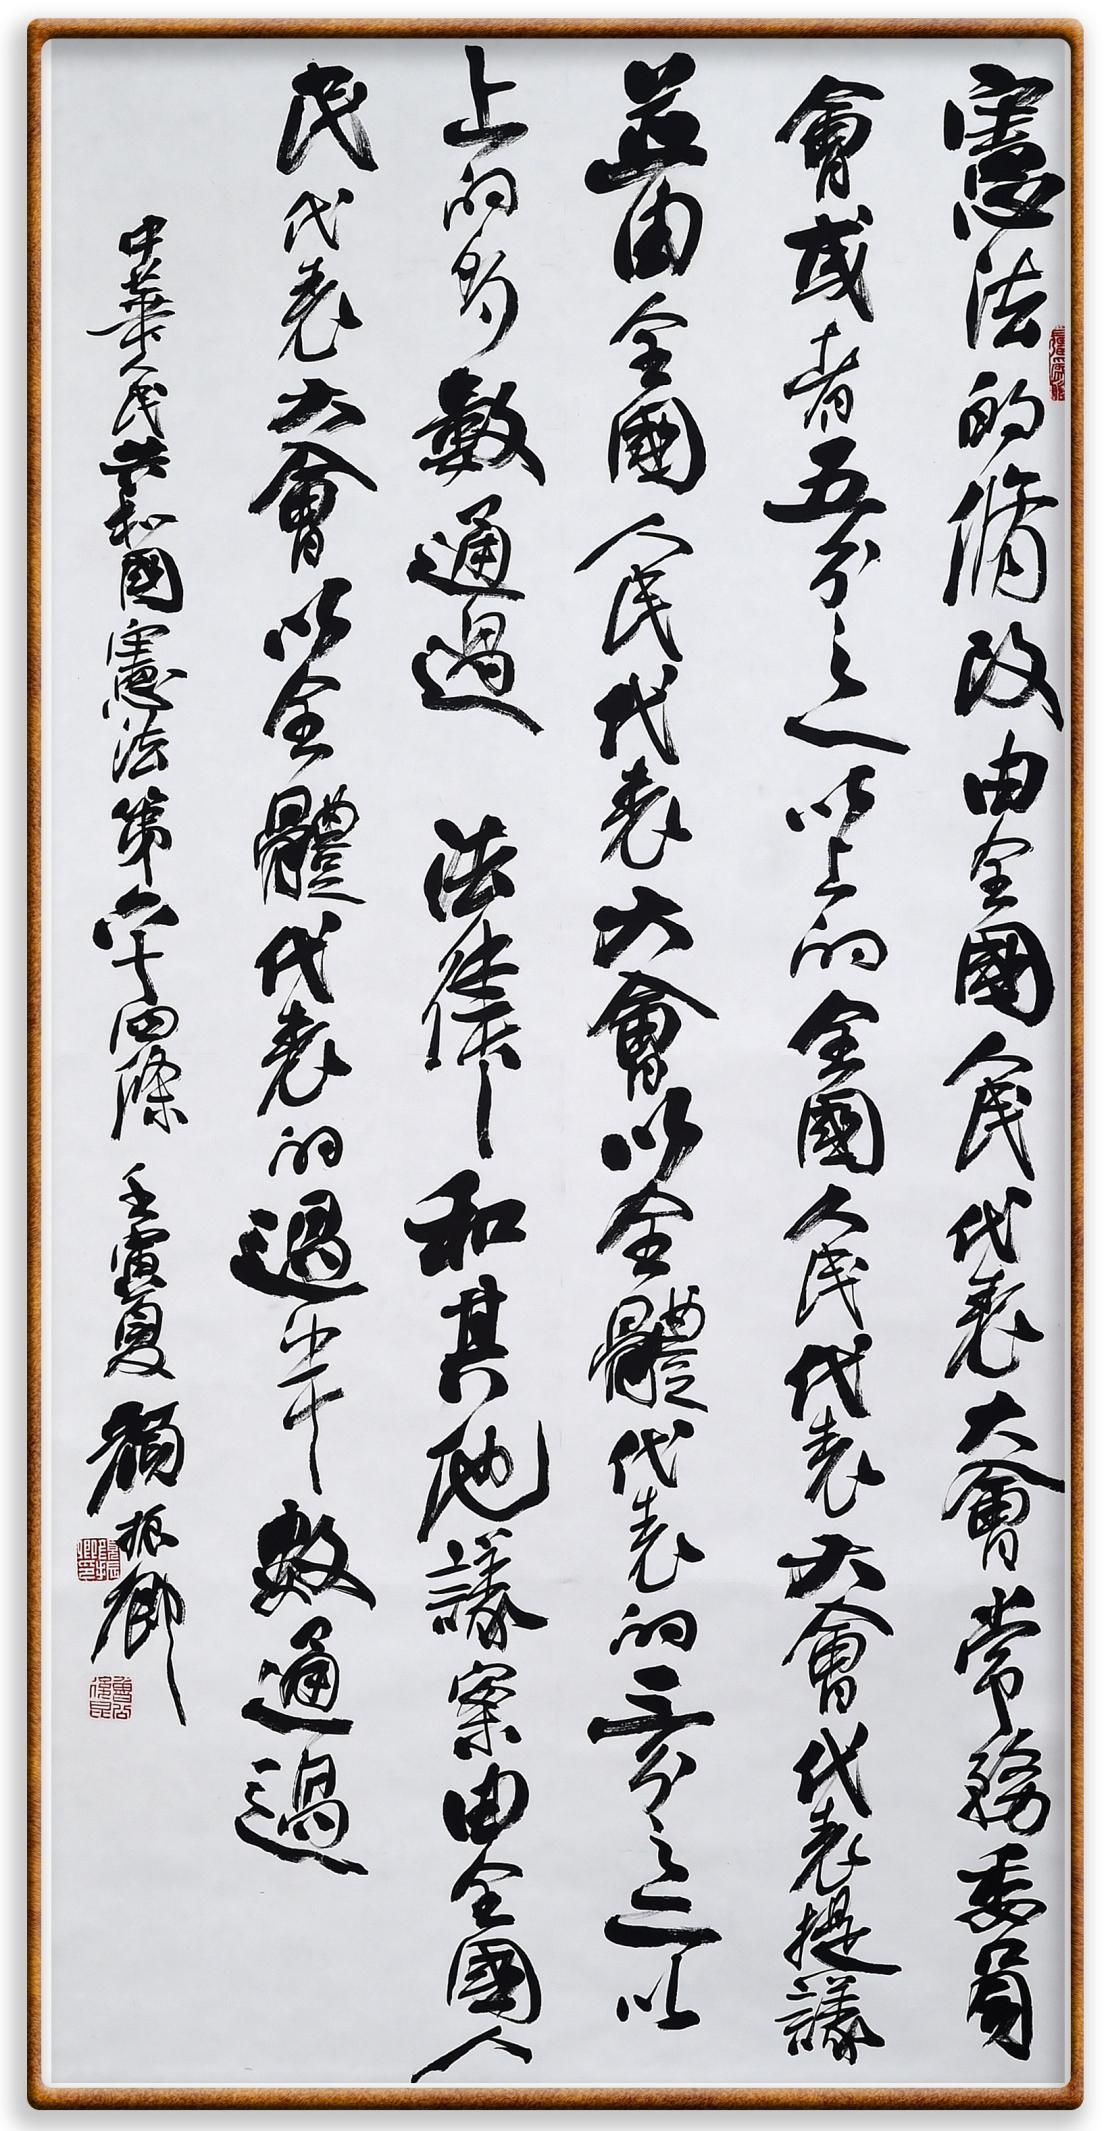 憲法的脩改由全國人民代表大會常務委員
會或者五分之一以上的全國人民代表大會代表提議
並由全國人民代表大會以全體代表的三分之二以
上的多數通過 法律和其他議案由全國人
民代表大會以全體代表的過半數通過
中華人民共和國憲法第六十四條 壬寅夏 顏振卿